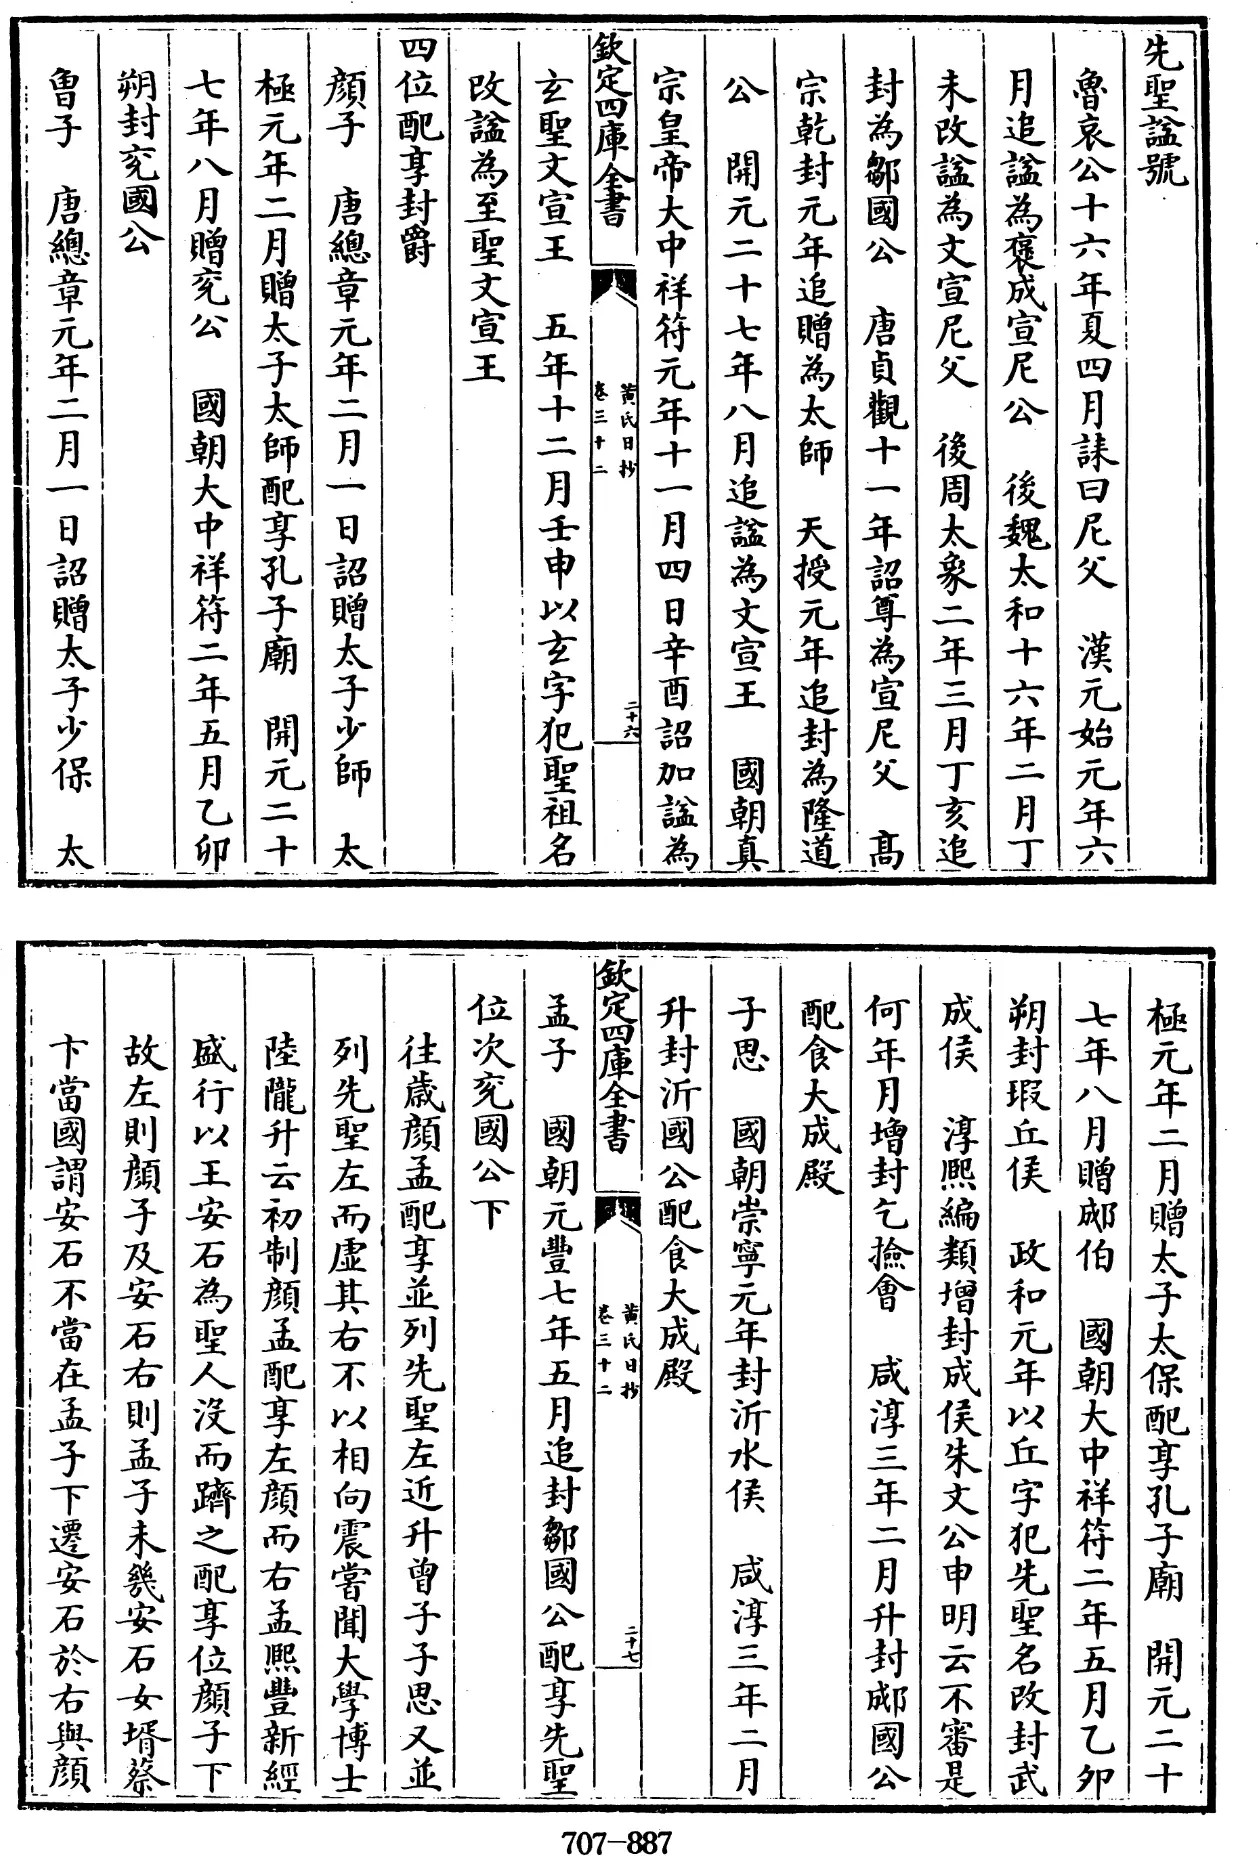 先聖諡號
魯哀公十六年夏四月誄曰尼父　漢元始元年六
月追諡為襃成宣尼公　後魏太和十六年二月丁
未改諡為文宣尼父　後周太象二年三月丁亥追
封為鄒國公　唐貞觀十一年詔尊為宣尼父　髙
宗乾封元年追贈為太師　天授元年追封為隆道
公　開元二十七年八月追諡為文宣王　國朝真
宗皇帝大中祥符元年十一月四日辛酉詔加諡為
欽定四庫全書
黃氏日抄
卷三十二
二十六
玄聖文宣王　五年十二月壬申以玄字犯聖祖名
改諡為至聖文宣王
四位配享封爵
顔子　唐總章元年二月一日詔贈太子少師　太
極元年二月贈太子太師配享孔子廟　開元二十
七年八月贈兖公　國朝大中祥符二年五月乙卯
朔封兖國公
曾子　唐總章元年二月一日詔贈太子少保　太
極元年二月贈太子太保配享孔子廟　開元二十
七年八月贈郕伯　國朝大中祥符二年五月乙卯
朔封瑕丘侯　政和元年以丘字犯先聖名改封武
成侯　淳熙編類增封成侯朱文公申明云不審是
何年月增封乞撿會　咸淳三年二月升封郕國公
配食大成殿
子思　國朝崇寧元年封沂水侯　咸淳三年二月
升封沂國公配食大成殿
欽定四庫全書
黃氏日抄
卷三十二
二十七
孟子　國朝元豐七年五月追封鄒國公配享先聖
位次兖國公下
往歲顔孟配享並列先聖左近升曾子子思又並
列先聖左而虛其右不以相向震嘗聞大學博士
陸隴升云初制顔孟配享左顔而右孟熙豐新經
盛行以王安石為聖人沒而躋之配享位顔子下
故左則顔子及安石右則孟子未幾安石女壻蔡
卞當國謂安石不當在孟子下遷安石於右與顔
707-887